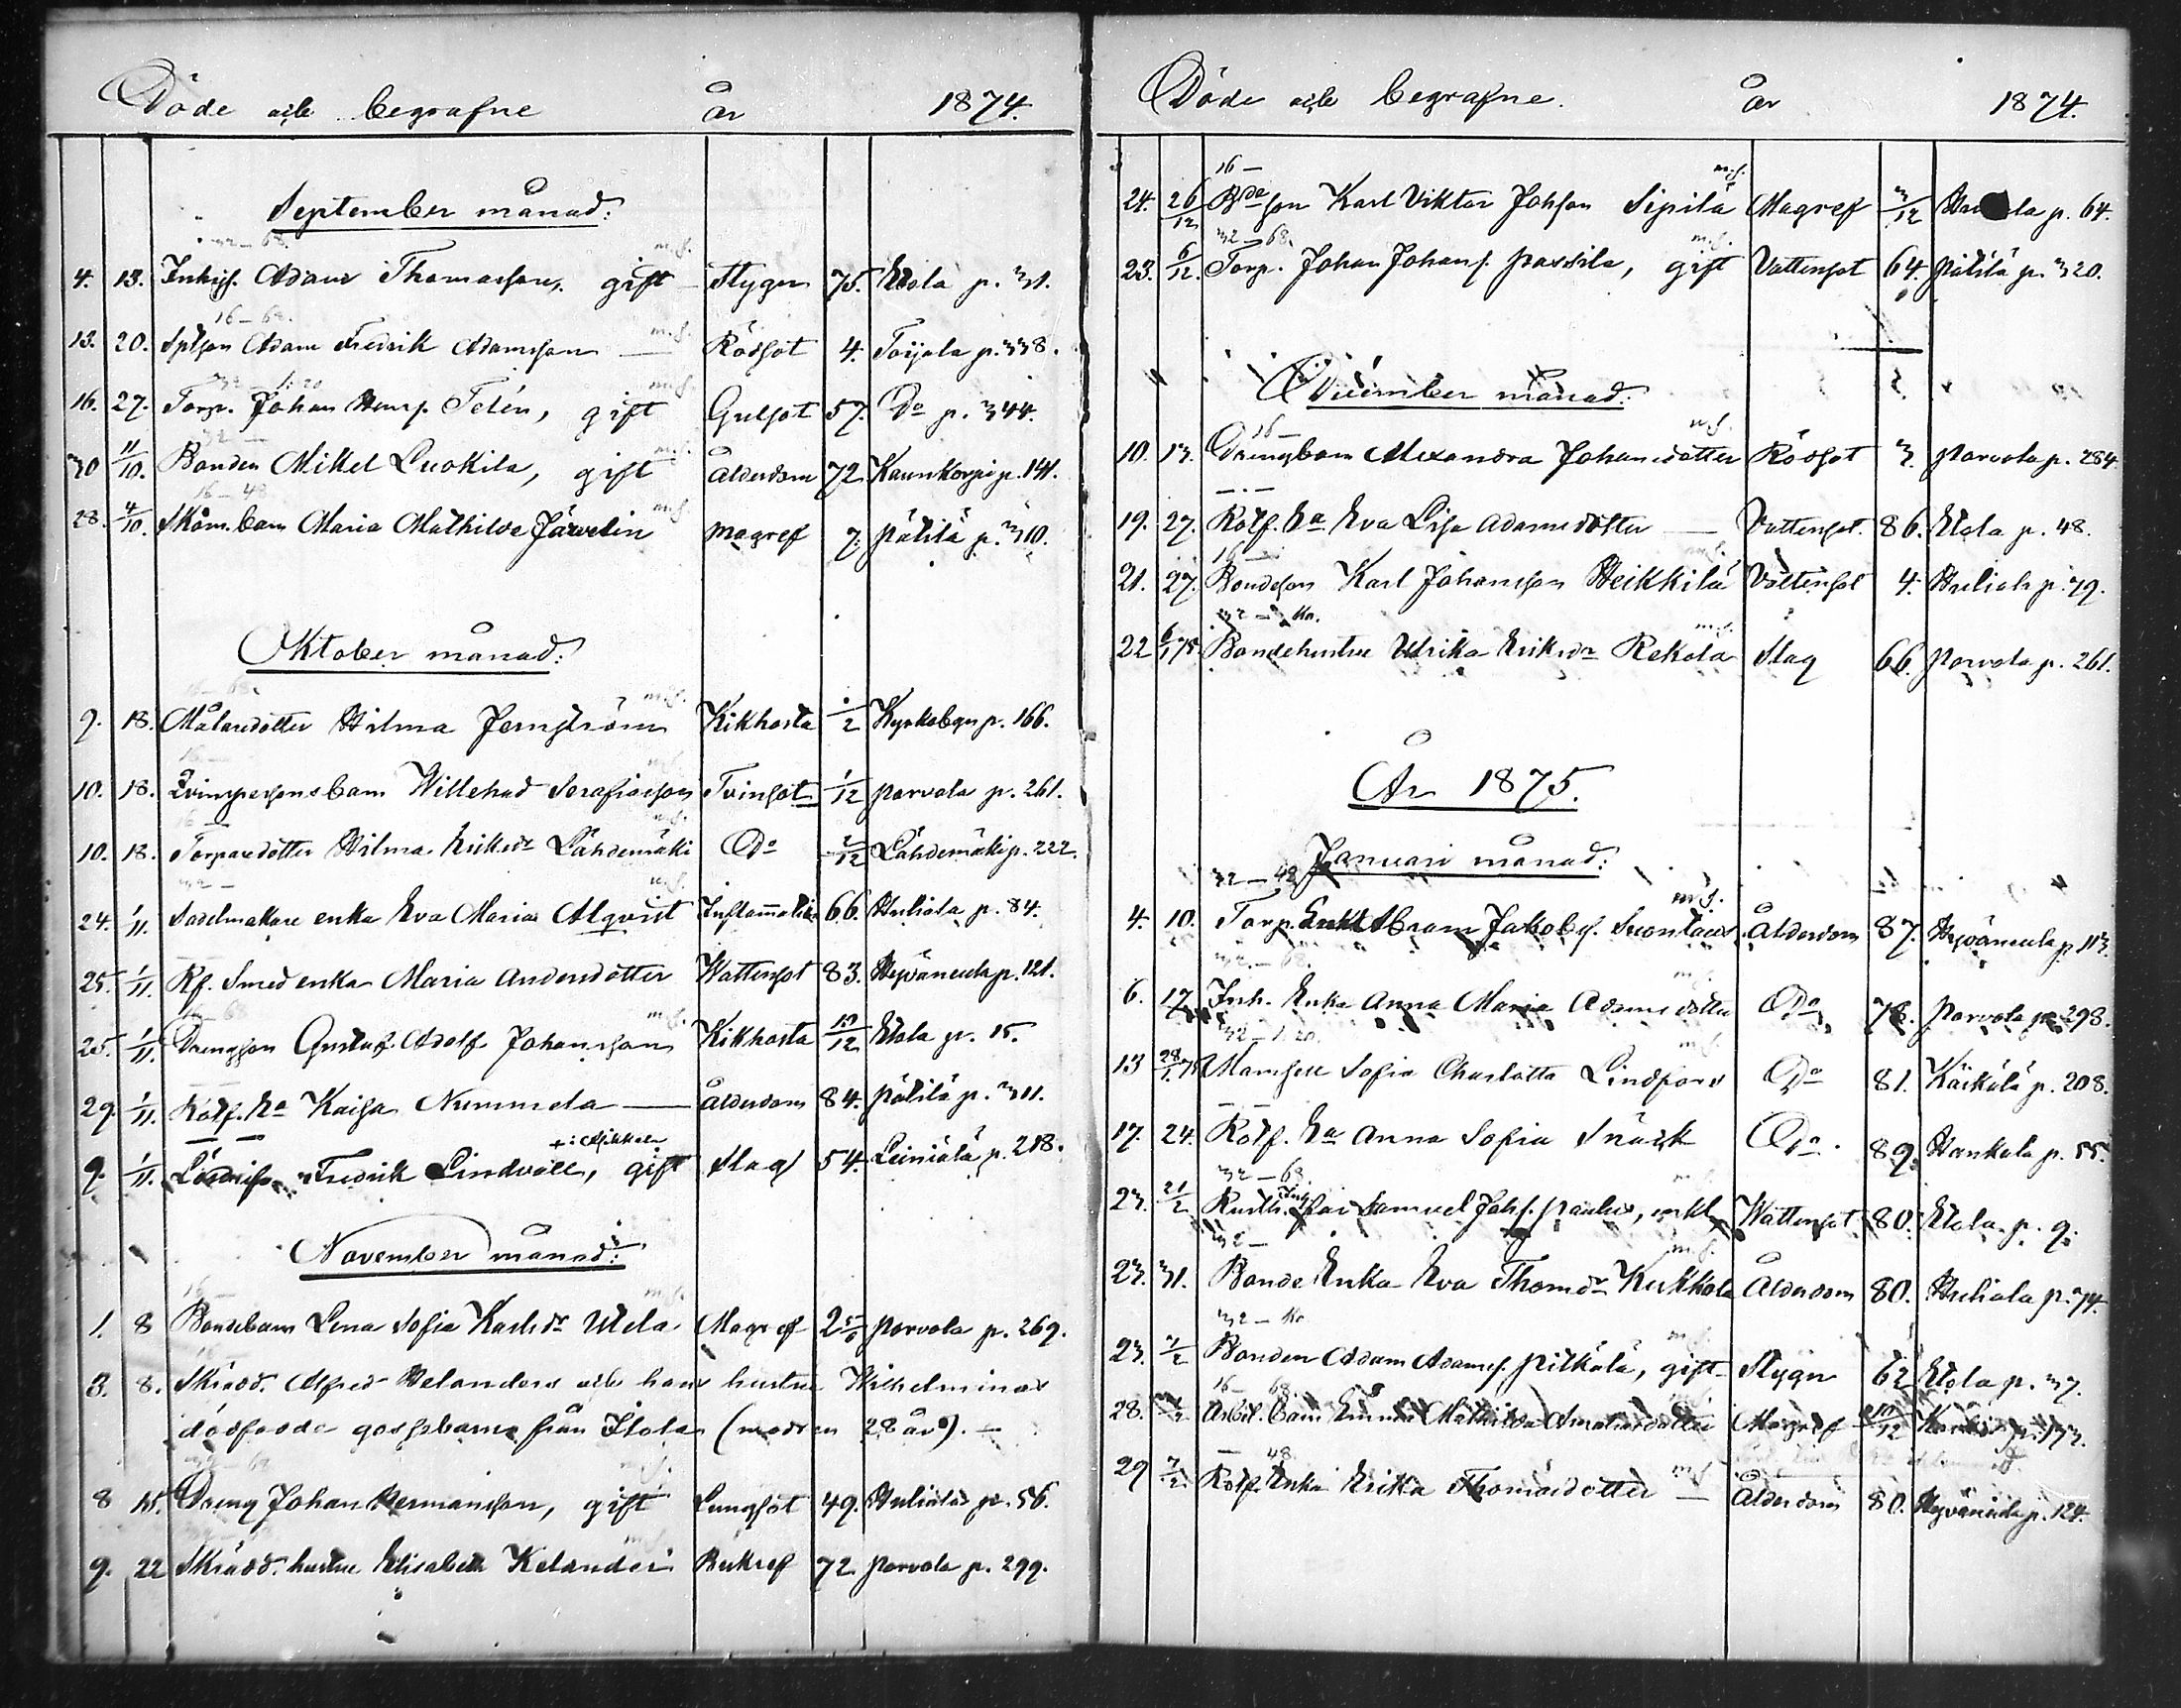 Döde och begrafne år 1874.
September månad:
4. 13. Inhys. Adam Thomasson, gift Stygn 75. Etola p. 31.
13. 20. Spl son Adam Fredrik Adamsson — Rödsot 4. Toijola p. 338.
16. 27. Torp. Johan Henr. s. Telén, gift Gulsot 57. Do p. 344.
30 11/10. Bonden Mikel Luokila, gift Ålderdom 72. Kaunkorpi p. 141.
28. 4/10. Skom. barn Maria Mathilda Järvelin Magref 7. Pätilä p. 310.
Oktober månad:
9. 18. Målaredotter Hilma Jernström Kikhosta 1/2 Kyrkobyn p. 166.
10. 18. barn Willehad Serafiasson Tvinsot 1/12 Porvola p. 261.
10. 18. Torparedotter Hilma Eriksdr Lähdemäki Do 2/12 Lähdemäki p. 222.
24. 1/11. Sadelmakare enka Eva Maria Alqvist Inflammation 66. Huliala p. 84.
25. 1/11. Rf. Smed enka Maria Andersdotter Wattensot 83. Hyväneula p. 121.
25. 1/11. Drengson Gustaf Adolf Johansson Kikhosta 10/12 Etola p. 15.
29. 1/11. Rotf. Ea Kaisa Nummela — Ålderdom 84. Pätilä p. 311.
9. 1/11. Fredrik Lindvall, gift Slag 54. Leiniälä p. 218.
November månad:
1. 8 Bondebarn Lena Sofia Karlsdr Utela Magref 2 5/6 Porvola p. 269.
3. 8. Skrädd. Alfred Helanders och hans hustru Wilhelminas
dödfödda gossebarn från Etola (modren 28 år). —
8 15. Dreng Johan Hermansson, gift Lungsot 49. Huliala p. 56.
9. 22 Skrädd. hustru Elisabeth Kelander Bukref 72. Porvola p. 299.
Döde och begrafne. år 1874.
24. 26/12 Bde son Karl Viktor Johsson Sipilä Magref 3/12 p. 64.
23. 6/12. Torp. Johan Johans. Passila, gift Vattensot 64. Pätilä p. 320.
December månad:
10. 13. Drengbarn Alexandra Johansdotter Rödsot 3. Porvola p. 284.
19. 27. Rotf. Ea Eva Lisa Adamsdotter — Vattensot. 86. Etola p. 48.
21. 27. Bondeson Karl Johansson Heikkilä Vattensot 4. Huliala p. 79.
22 6/1 75. Bondehustru Ulrika Eriksdr Rekola Slag 66. Porvola p. 261.
År 1875.
Januari månad:
4. 10. Torp. Enkl Abram Jakobs. Ålderdom 87. Hyväneula p. 113.
6. 17. Inh. Enka Anna Maria Adamsdotter Do 78. Porvola p. 298.
13 28/1. 75 Mamsell Sofia Charlotta Lindfors Do 81. Käikälä p. 208.
17. 24. Rotf. Ea Anna Sofia Snäck Do. 89. Hankala p. 55.
23. 21/2 Rusth. far Samuel Johs. Paulus, enkl. Wattensot 80. Etola p. 9.
23. 31. Bonde Enka Eva Thomdr Kukkola Ålderdom 80. Huliala p. 74.
23. 7/2 Bonden Adam Adams. Pitkälä, gift Stygn 62 Etola p. 37.
28. Arbet. barn Emma Mathilda Amaliasdotter Magref 10/12 p. 173.
29 7/2. Rotf. Enka Erika Thomasdotter — Ålderdom 80. Hyväneula p. 124.